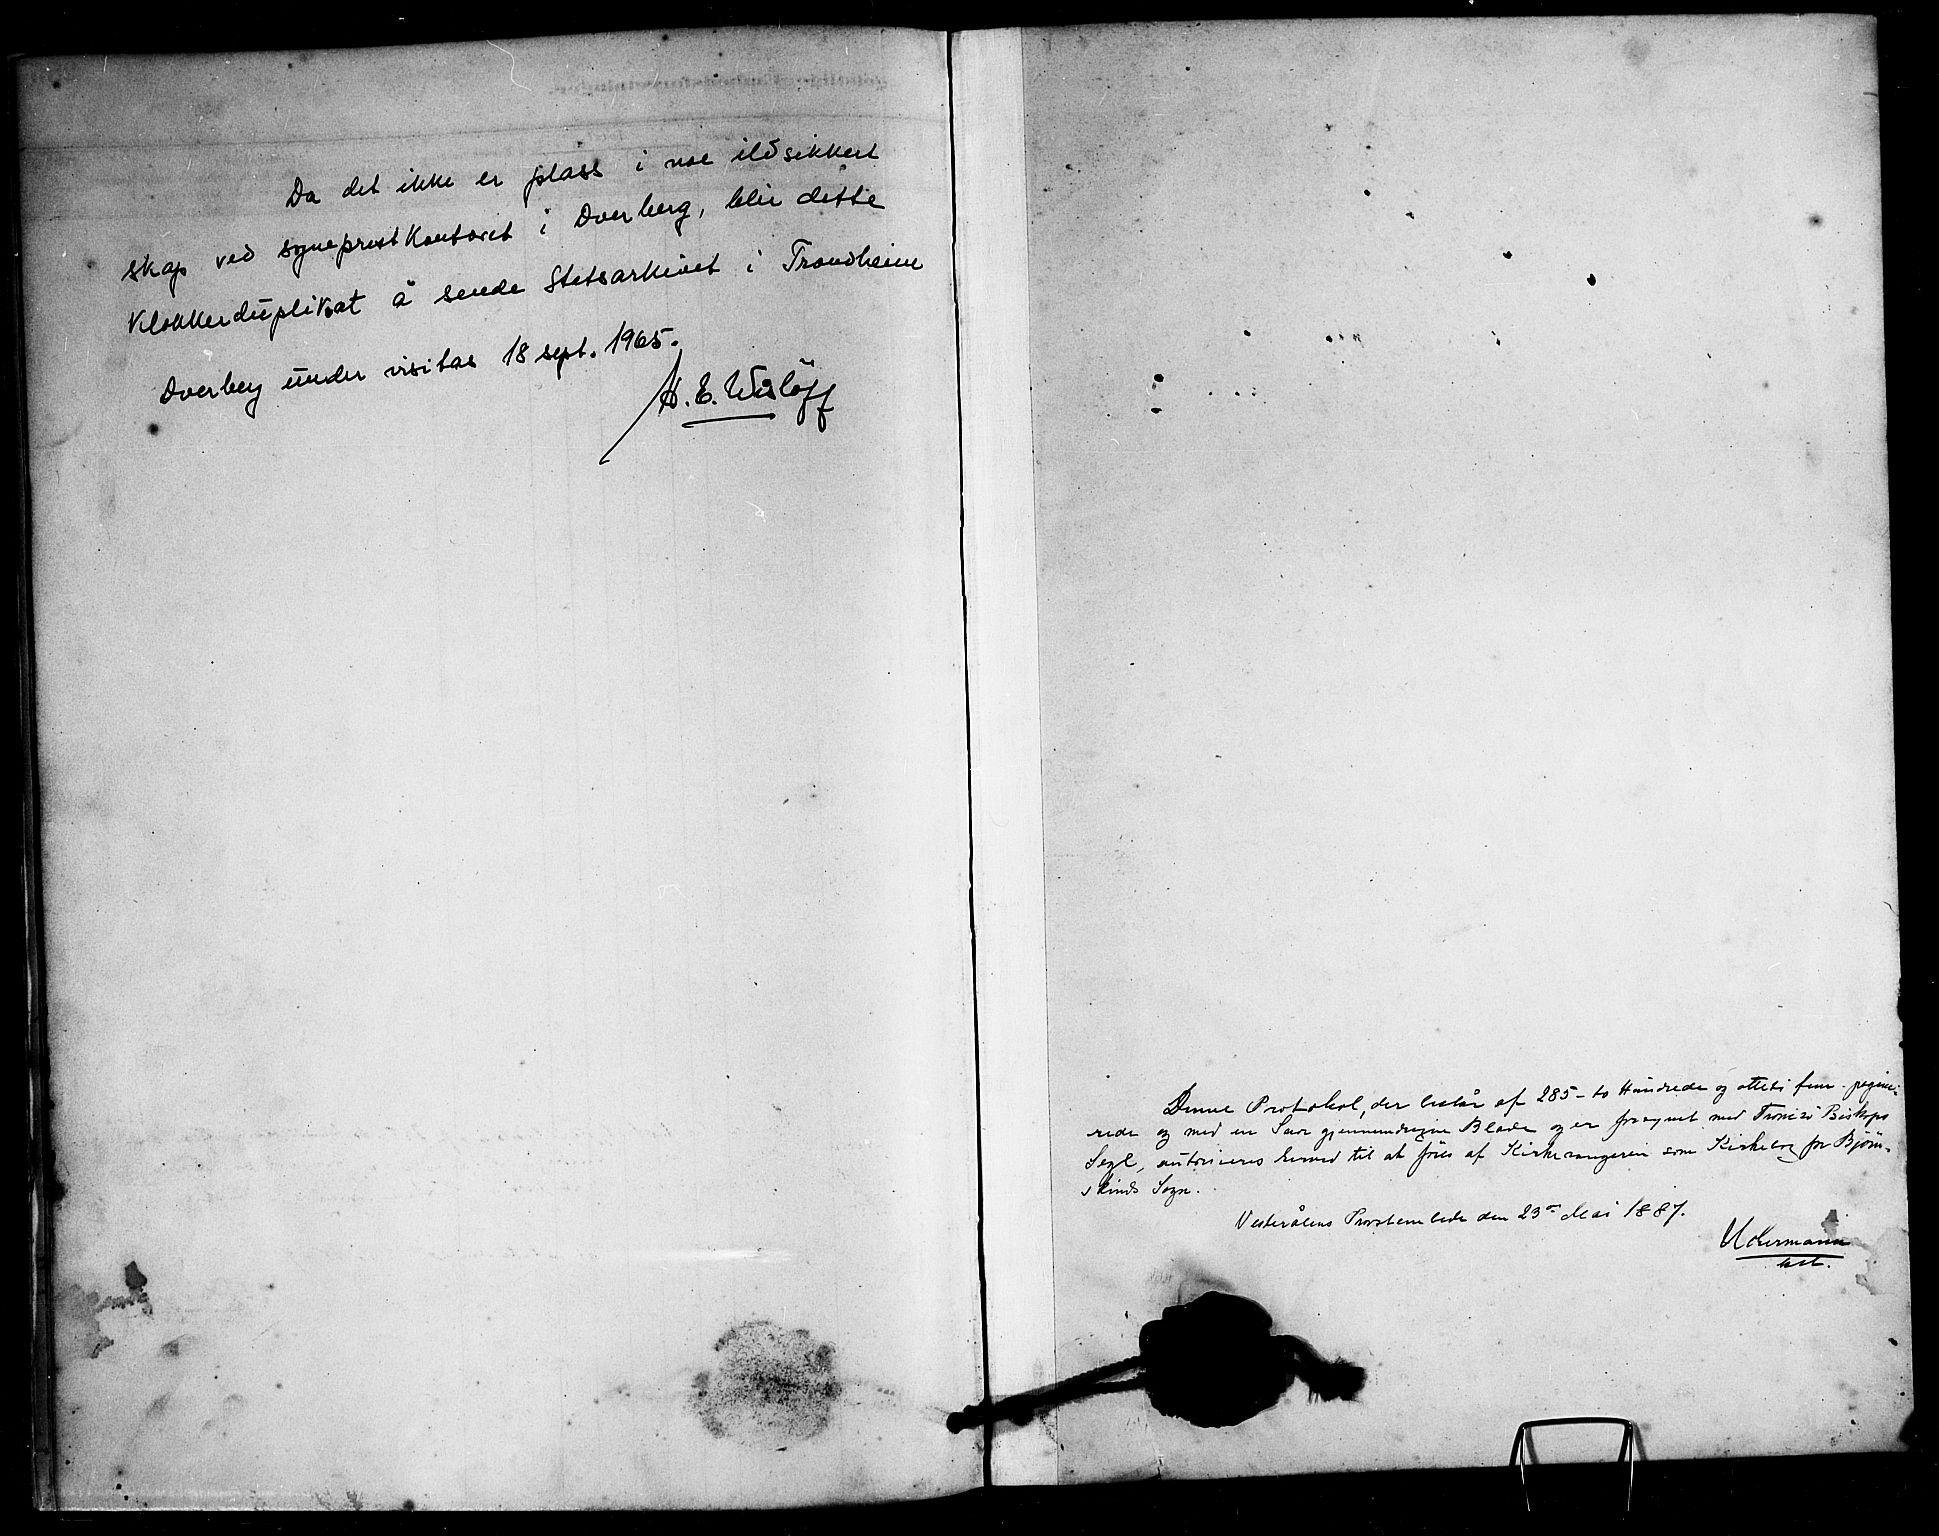 Da det ikke er plass i noe ildsikkert
skap ved sogneprestkontoret i Dverberg, blir dette
klokkerduplikat å sende Statsarkivet i Trondheim
Dverberg under visitas 18 sept. 1965.
H. E. Wisløff
Denne Protokol, der består af 285 - to Hundrede og otteti fem - pagine-
rede og med en Snor gjennemdragne Blade og er forsynet med Tromsö Biskops
Segl, autoriseres herved til at föres af Kirkesangeren som Kirkebog for Björn-
skinds Sogn.
Vesterålens Provstembede den 23de Mai 1887.
Uckermann